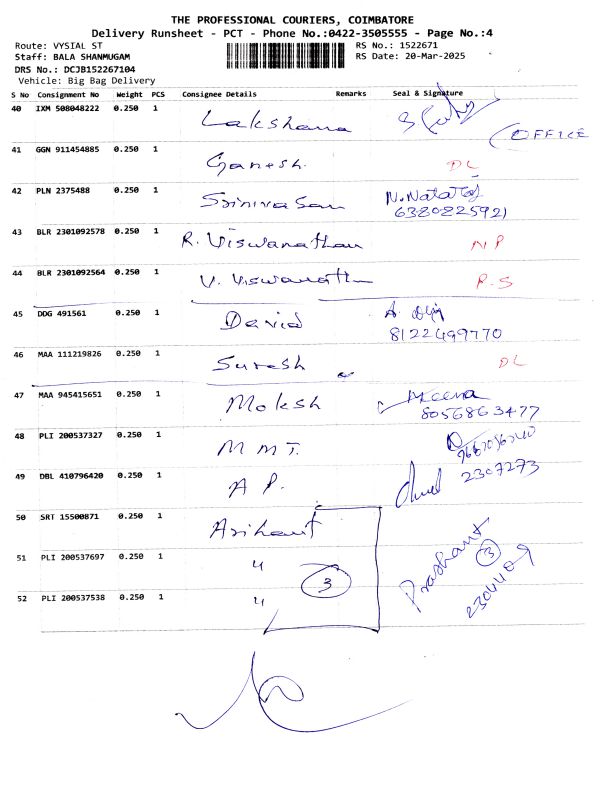 THE PROFESSIONAL COURIERS, COIMBATORE
Delivery Runsheet - PCT - Phone No.:0422-3505555 - Page No.:4
Route: VYSIAL ST RS No.: 1522671
Staff: BALA SHANMUGAM RS Date: 20-Mar-2025
DRS No.: DCJB152267104
Vehicle: Big Bag Delivery
S No Consignment No Weight PCS Consignee Details Remarks Seal & Signature
40 IXM 508048222 0.250 1 Lakshana OFFICE
41 GGN 911454885 0.250 1 Ganesh. DL
42 PLN 2375488 0.250 1 Srinivasan N. Nataraj
6380825921
43 BLR 2301092578 0.250 1 R. Viswanathan NP
44 BLR 2301092564 0.250 1 V. Viswanathn R.S
45 DDG 491561 0.250 1 David A.
8122499770
46 MAA 111219826 0.250 1 Suresh DL
47 MAA 945415651 0.250 1 Moksh Meena
8056863477
48 PLI 200537327 0.250 1 M M T.
49 DBL 410796420 0.250 1 A P. 2307273
50 SRT 15500871 0.250 1 Arihant
51 PLI 200537697 0.250 1 4 3 Prashant 3
52 PLI 200537538 0.250 1 4